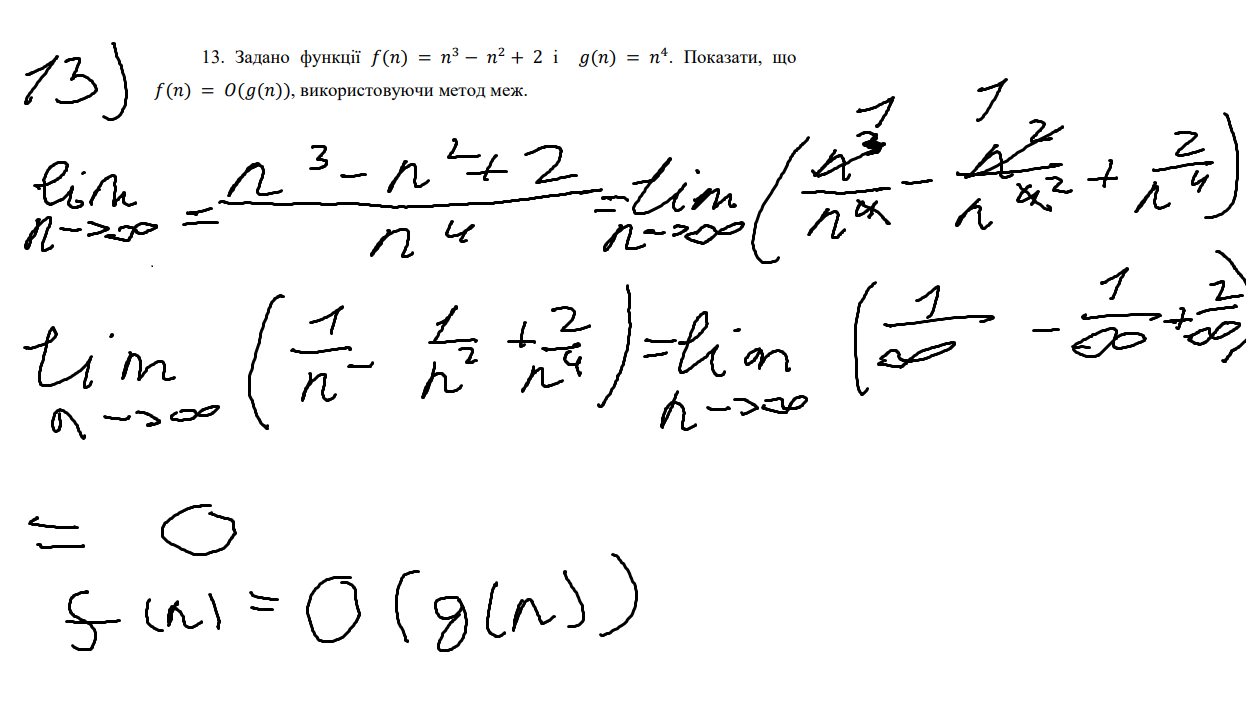 13)
13. Задано функції f(n) = n³ − n² + 2 і g(n) = n⁴. Показати, що
f(n) = O(g(n)), використовуючи метод меж.
lim n->∞ = (n³ - n² + 2)/n⁴ = lim n->∞ (n³/n⁴ - n²/n⁴ + 2/n⁴) 1 1 2
lim n->∞ (1/n - 1/n² + 2/n⁴) = lim n->∞ (1/∞ - 1/∞ + 2/∞)
= 0
f(n) = O(g(n))